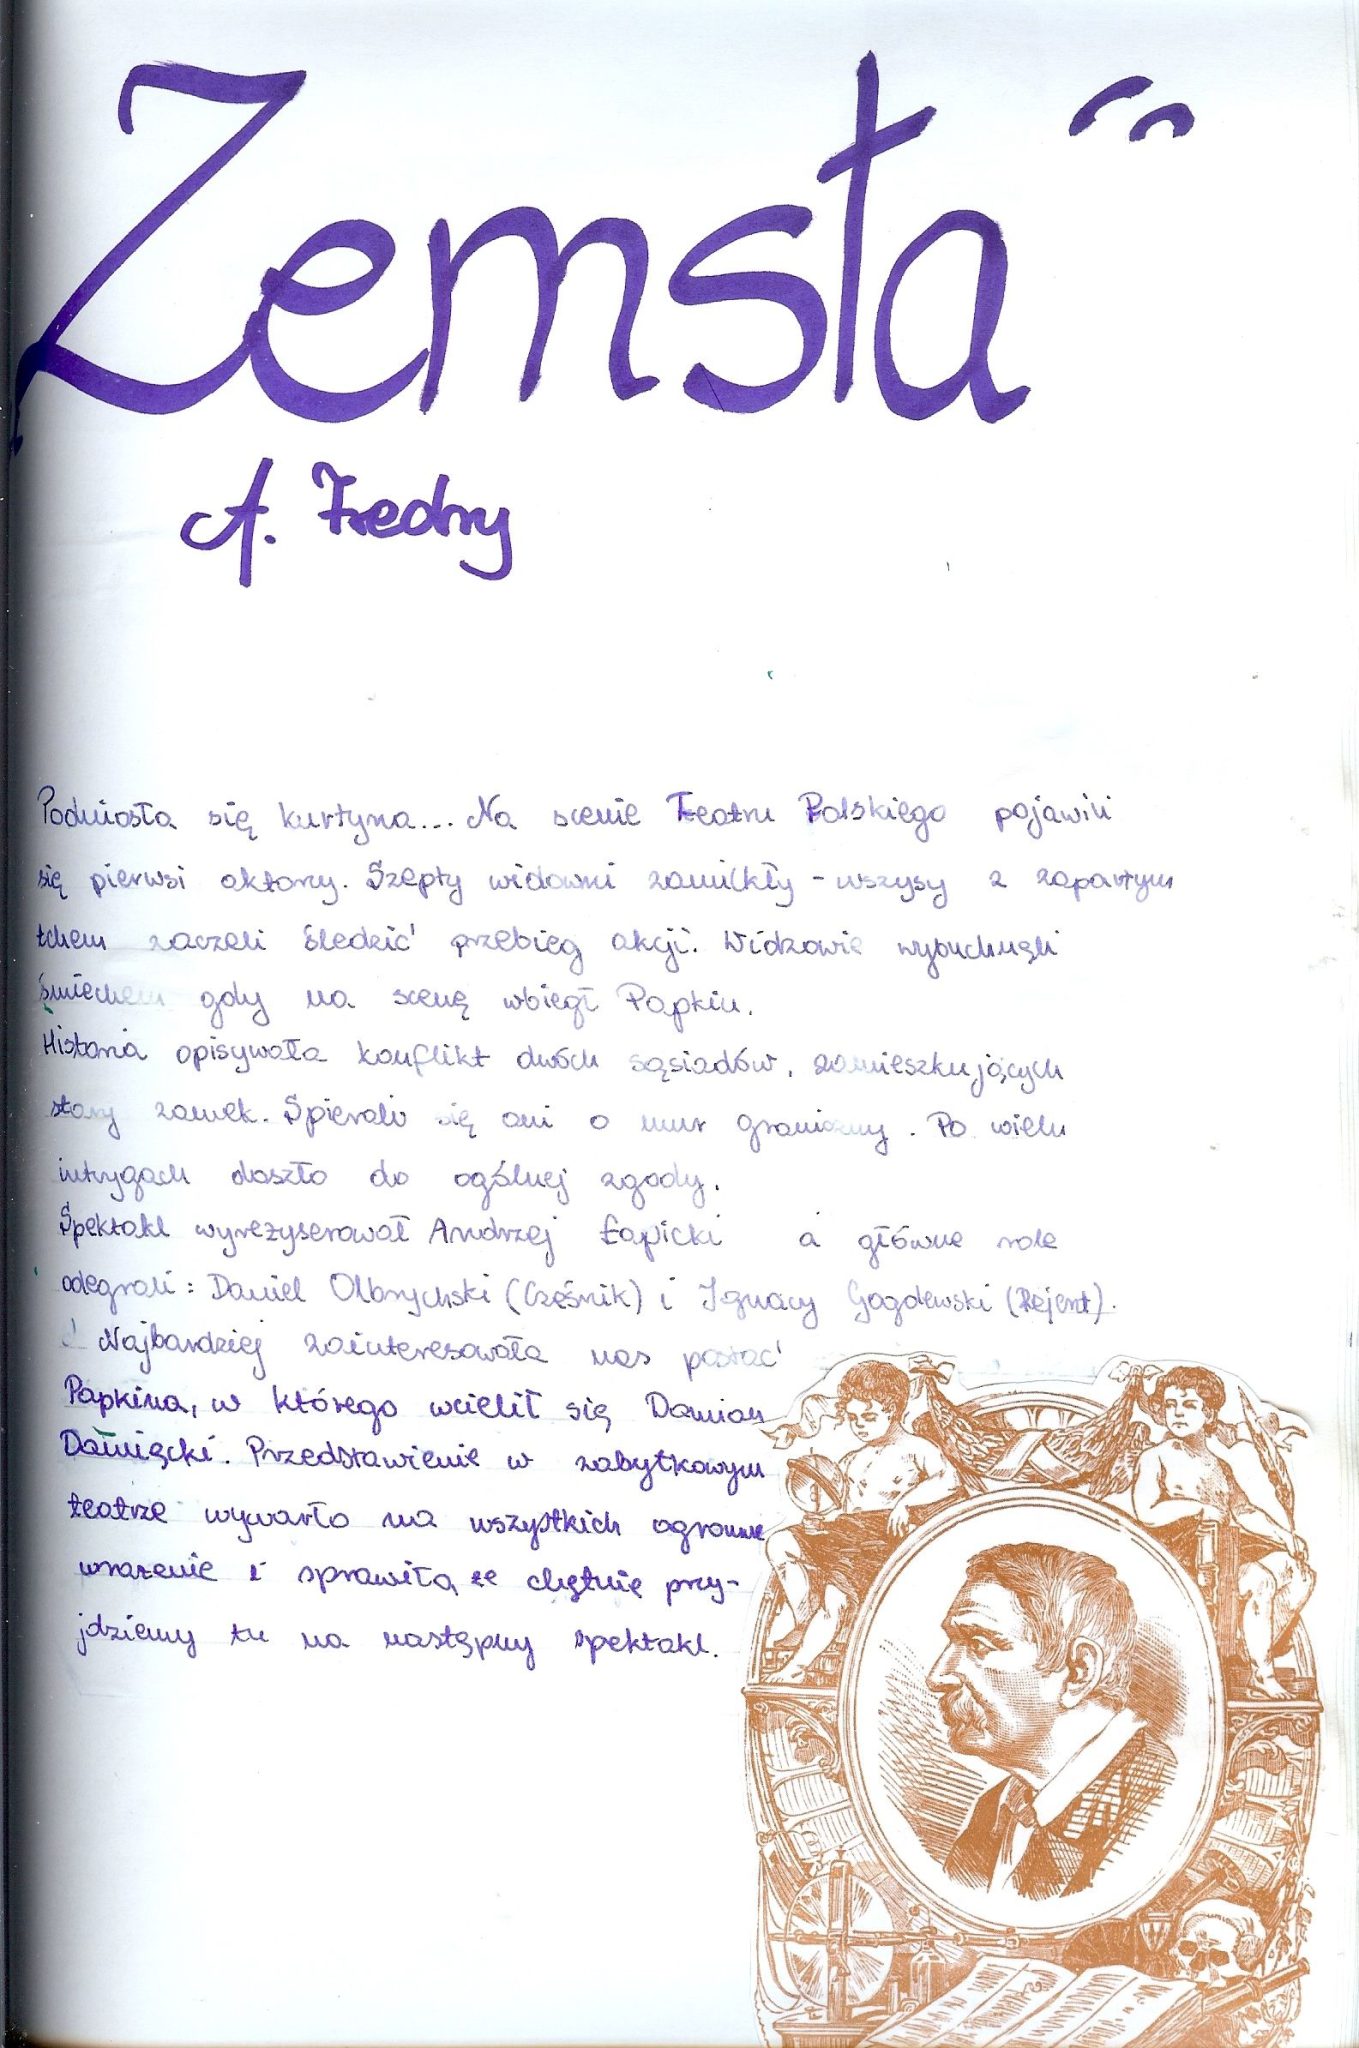 Zemsta"
A. Fredry
Podniosła się kurtyna... Na scenie Teatru Polskiego pojawili
się pierwsi aktorzy. Szepty widowni zamilkły - wszysy z zapartym
tchem zaczeli śledzić przebieg akcji. Widzowie wybuchnęli
śmiechem gdy na scenę wbiegł Papkin.
Historia opisywała konflikt dwóch sąsiadów, zamieszkujących
stary zamek. Spierali się oni o mur graniczny. Po wielu
intrygach doszło do ogólnej zgody.
Spektakl wyreżyserował Andrzej Łapicki a główne role
odegrali: Daniel Olbrychski (Cześnik) i Ignacy Gogolewski (Rejent).
Najbardziej zainteresowała nas postać
Papkina, w którego wcielił się Damian
Damięcki. Przedstawienie w zabytkowym
teatrze wywarło na wszystkich ogromne
wrażenie i sprawiło, że chętnie przy-
jdziemy tu na następny spektakl.